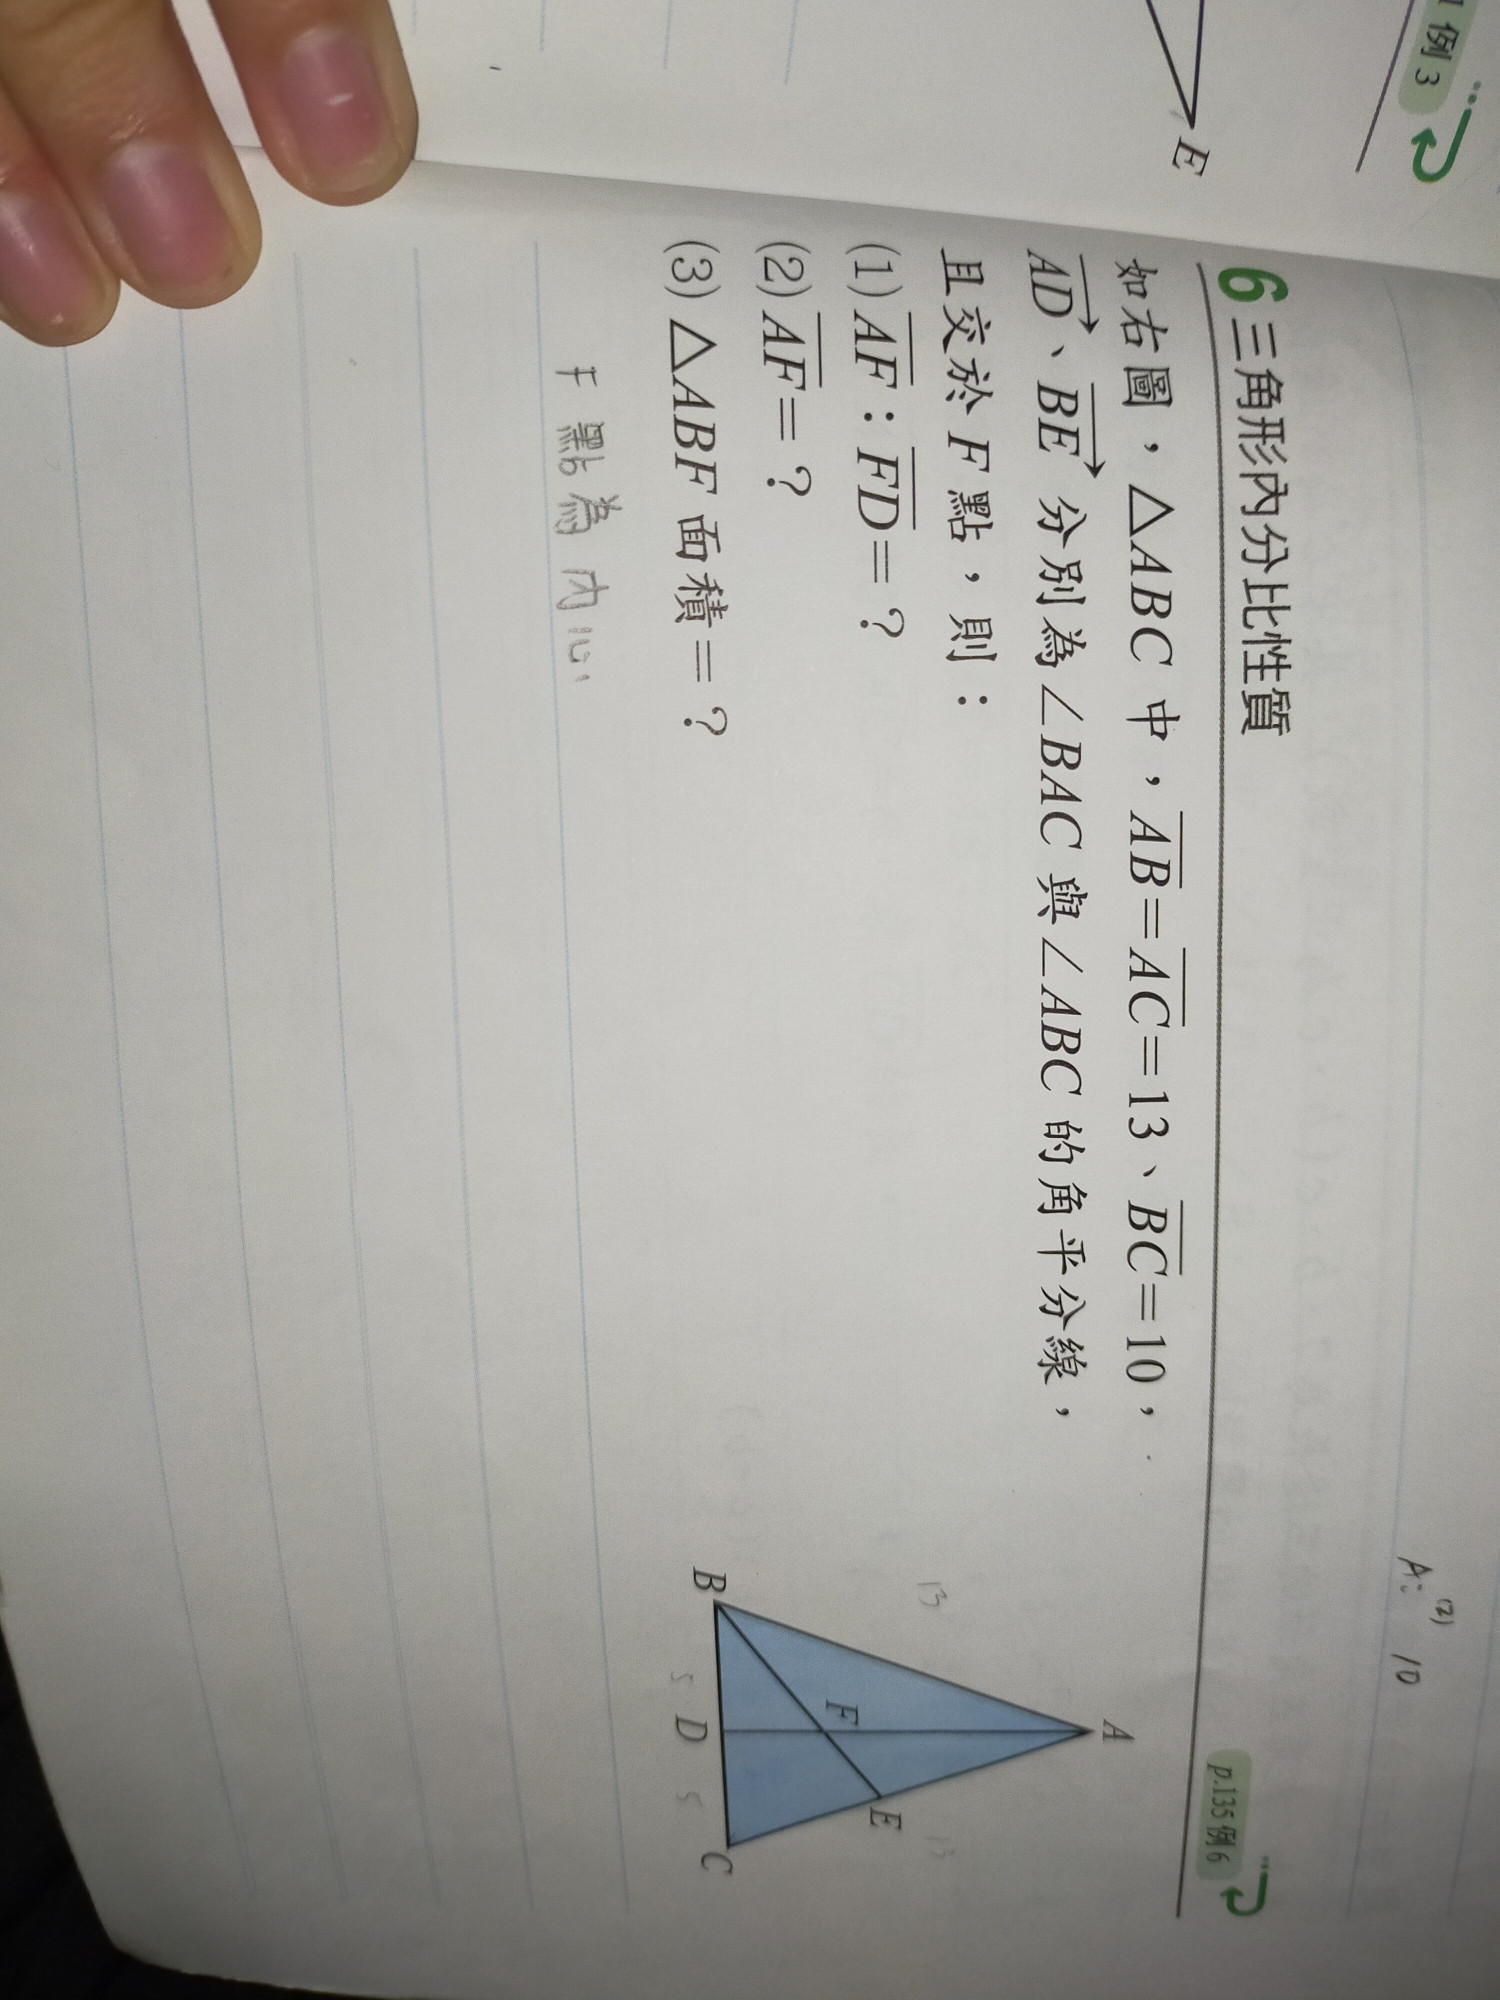 1 例 3
E
A: (2) 10
6 三角形內分比性質
p.135 例 6
如右圖，△ABC 中，AB=AC=13、BC=10，
AD、BE 分別為∠BAC 與∠ABC 的角平分線，
且交於 F 點，則：
(1) AF：FD=？
(2) AF=？
(3) △ABF 面積=？
F 點為內心
A
13
13
F
E
B
D
C
5
5